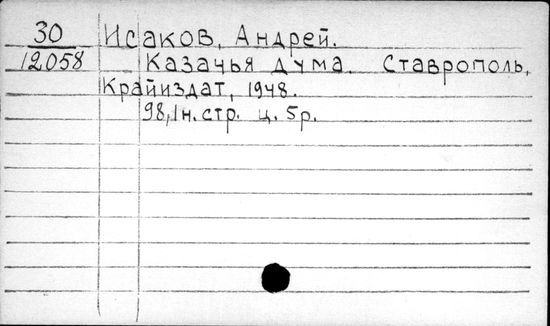 30 Исаков, Андрей.
12058 Казачья дума. Ставрополь,
Крайиздат, 1948.
98,1н.стр. ц. 5р.